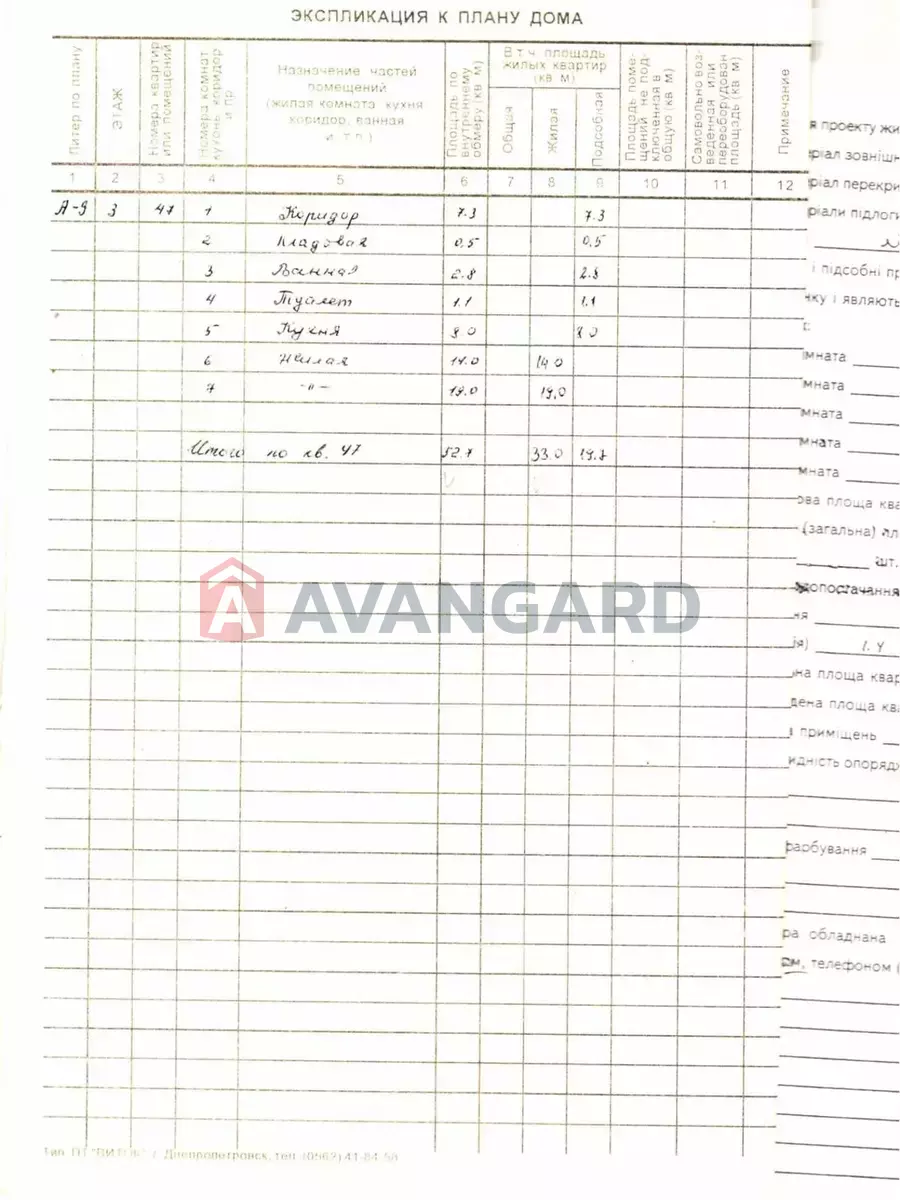 ЭКСПЛИКАЦИЯ К ПЛАНУ ДОМА
Литер по плану
ЭТАЖ
Номера квартир
или помещений
Номера комнат
кухонь, коридор
и пр.
Назначение частей
помещений
(жилая комната кухня
коридор, ванная
и т.п.)
Площадь по
внутреннему
обмеру (кв м)
В т. ч. площадь
жилых квартир
(кв м)
Общая
Жилая
Подсобная
Площадь поме-
щений не под-
ключенная в
общую (кв м)
Самовольно воз-
веденная или
переоборудован
площадь (кв м)
Примечание
1 2 3 4 5 6 7 8 9 10 11 12
А-9 3 47 1 Коридор 7.3 7.3
2 Кладовая 0,5 0,5
3 Ванная 2.8 2.8
4 Туалет 1.1 1.1
5 Кухня 9 0 9 0
6 Жилая 14.0 14 0
7 -"- 19.0 19,0
Итого по кв. 47 52.7 33.0 19.7
AVANGARD
я проекту жи
ріал зовнішн
ріал перекри
ріали підлоги
і підсобні пр
нку і являють
мната
мната
мната
мната
мната
ова площа ква
(загальна) пл
шт.
допостачання
ня
ія) 1.4
на площа квар
дена площа ква
і приміщень
идність опорядж
фарбування
ра обладнана
ом, телефоном (
Днепропетровск, тел. (0562) 41-84-50